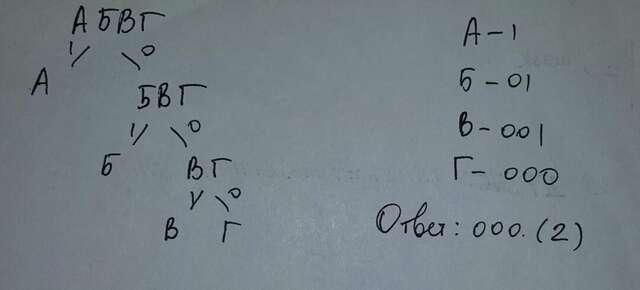 АБВГ
1 0
А
БВГ
1 0
Б ВГ
1 0
В Г
А - 1
Б - 01
В - 001
Г - 000
Ответ: 000. (2)